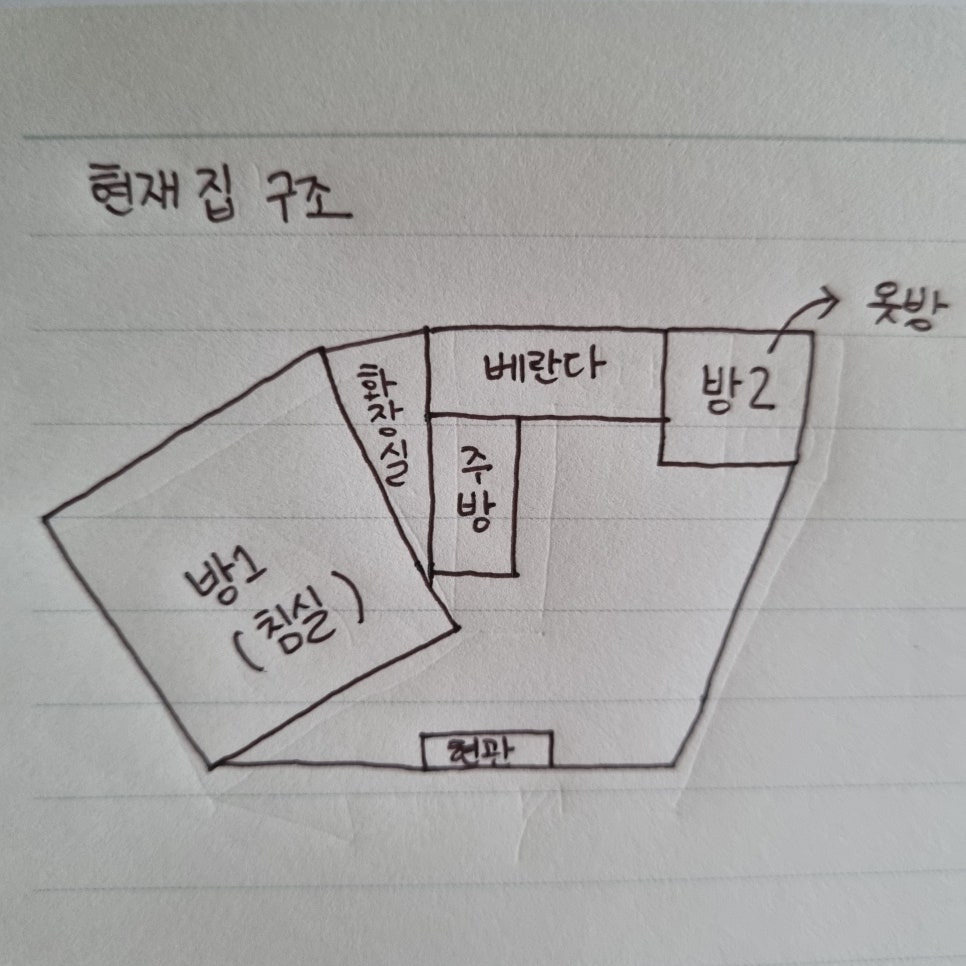 현재 집 구조
옷방
베란다
방2
화장실
주방
방1
(침실)
현관